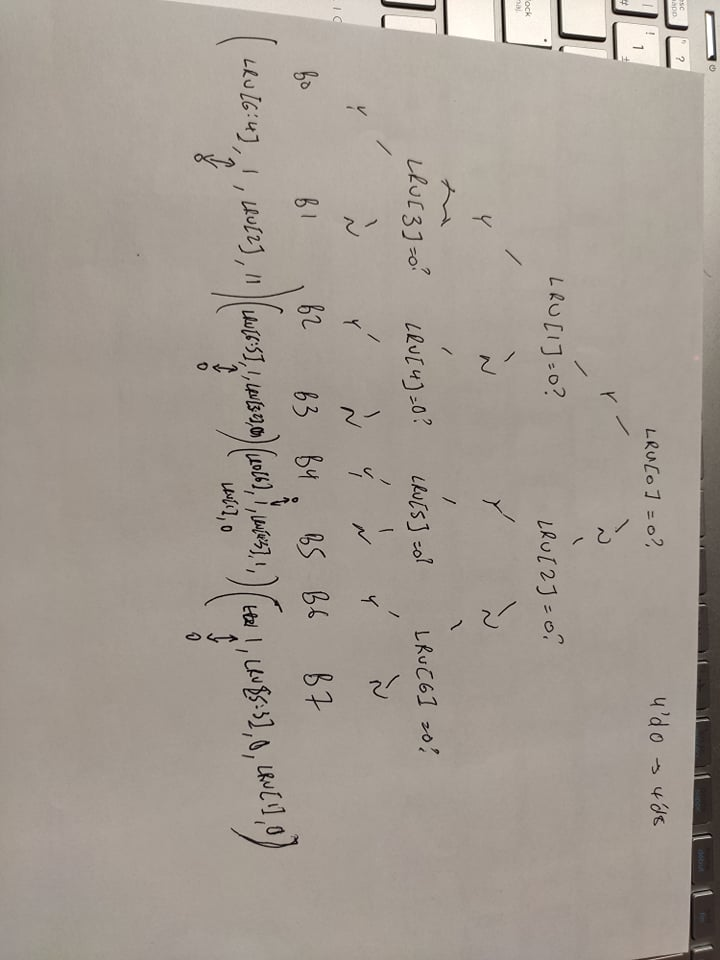 4'd0 → 4'd8
LRU[0]=0?
Y N
LRU[1]=0? LRU[2]=0?
Y N Y N
LRU[3]=0? LRU[4]=0? LRU[5]=0? LRU[6]=0?
Y N Y N Y N Y N
B0 B1 B2 B3 B4 B5 B6 B7
(LRU[6:4], 1, LRU[2], 11) (LRU[6:5], 1, (LRU[6], 1, 1, 0, LRU[1], 0)
0 0 0 LRU[1], 0 0